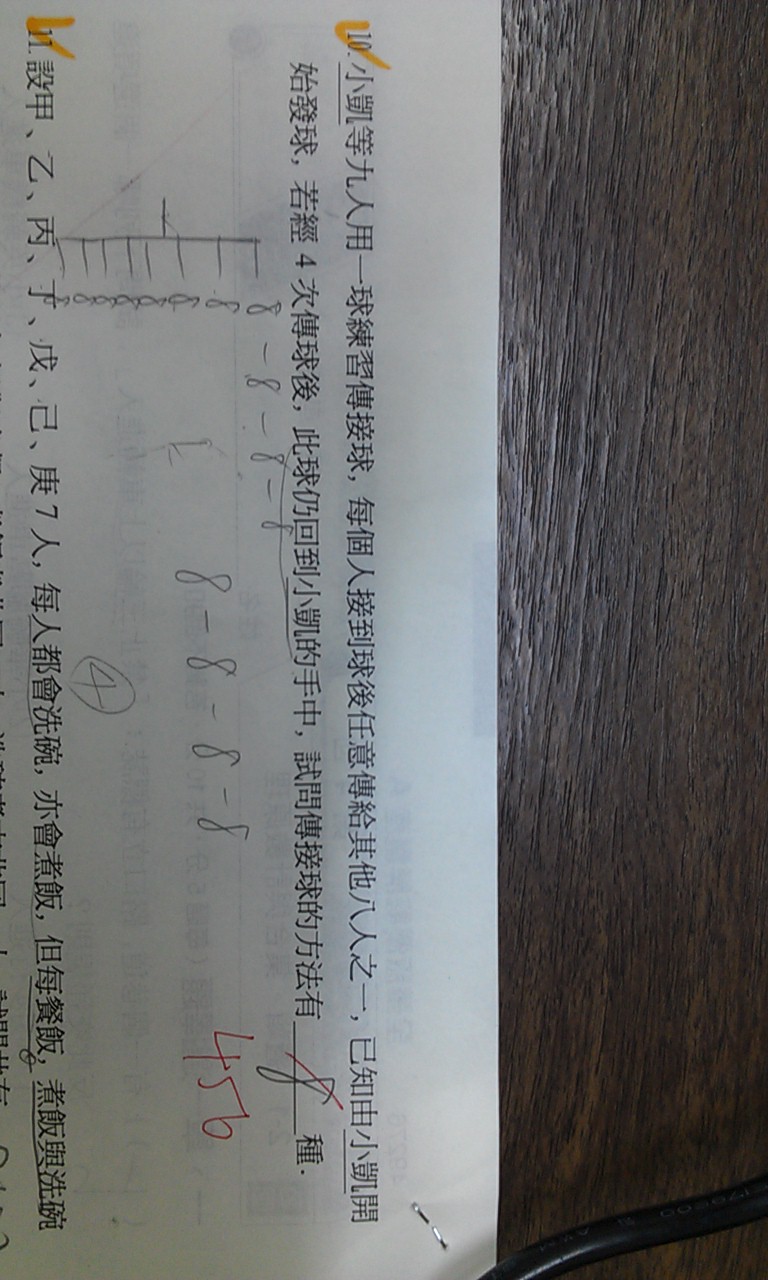 10. 小凱等九人用一球練習傳接球，每個人接到球後任意傳給其他八人之一，已知由小凱開
始發球，若經 4 次傳球後，此球仍回到小凱的手中，試問傳接球的方法有 8 種．
456
8 - 8 - 8 - 8
8 - 8 - 8 - 8
8 8 8 8 8 8
④
11. 設甲、乙、丙、丁、戊、己、庚 7 人，每人都會洗碗，亦會煮飯，但每餐飯，煮飯與洗碗